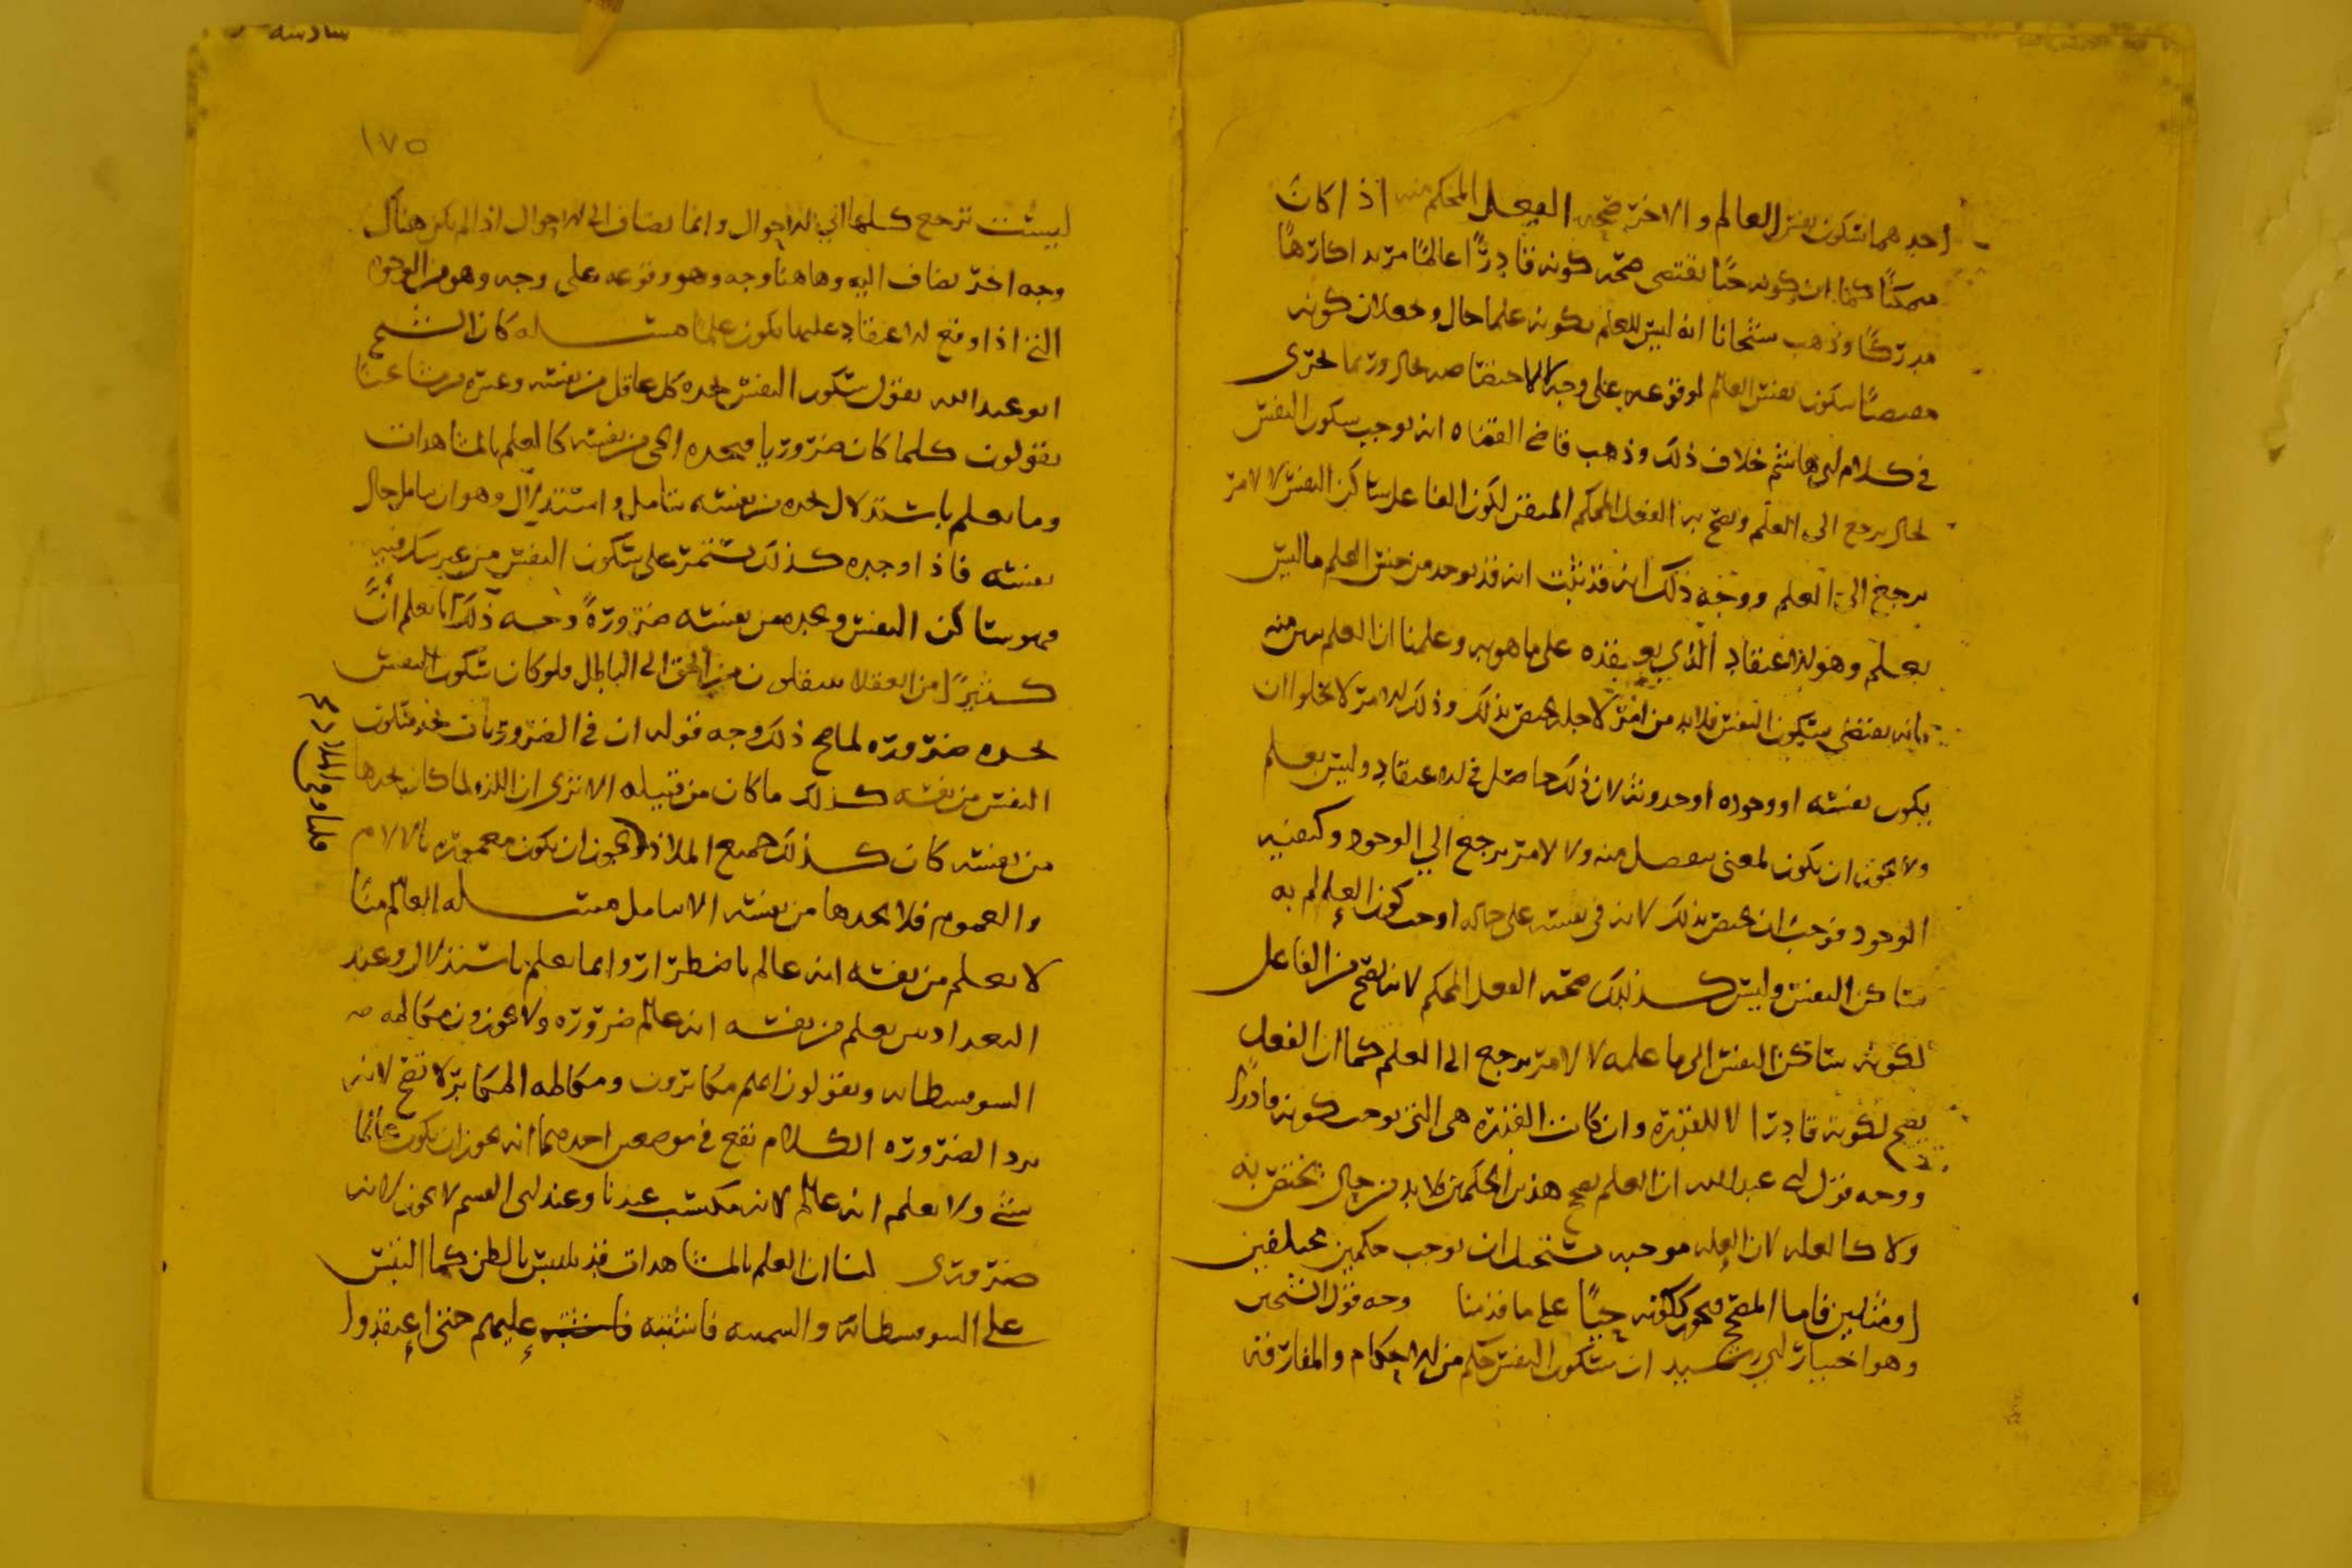 احدهما سكون نفس العالم والاخر صحه الفعل المحكم منه اذا كان
ممكنًا كما ان كونه حيًا يقتضي صحة كونه قادرًا عالمًا مريدا كارهًا
مدركًا وذهب شيخانا انه ليس للعلم بكونه علما حال وحعلا ان كونه
مقتضيًا سكون نفس العالم لوقوعه على وجه لا لاختصاصه بحال وربما جرى
في كلام ابي هاشم خلاف ذلك وذهب قاضي القضاه انه يوجب سكون النفس
لحال يرجع الى العلم ويصح به الفعل المحكم المتقن لكون الفاعل ساكن النفس لا لامر
يرجع الى العلم ووجه ذلك انه قد ثبت انه قد يوجد من جنس العلم ما ليس
بعلم وهو الاعتقاد الذي يعتقده على ما هو به وعلمنا ان العلم يبين منه
بانه يقتضي سكون النفس فلا بد من امر لاجله يختص بذلك وذلك الامر لا يخلوا ان
يكون نفسه او وجوده او حدوثه لان ذلك حاصل في الاعتقاد وليس بعلم
ولا يجوز ان يكون لمعنى ينفصل منه ولا لامر يرجع الي الوجود وكيفيه
الوجود فوجب ان يختص بذلك لانه في نفسه على حاله اوجب كون العالم به
ساكن النفس وليس كذلك صحة الفعل المحكم لانه يصح من الفاعل
لكونه ساكن النفس الى ما علمه لا لامر يرجع الى العلم كما ان الفعل
يصح لكونه قادرا لا للقدرة وان كانت القدره هي التي توجب كونه قادرًا
ووجه قول ابي عبدالله ان العلم يصح هذين الحكمين فلا بد من حال يختص به
ولا كالعله لان العله موجبه يستحيل ان توجب حكمين مختلفين
او مثلين فاما المصحح فيجوز ككونه حيًا على ما قدمنا وجه قول الشيخين
وهو اختيار ابي رشيد ان سكون النفس حكم من الاحكام والمفارقه
١٧٥
ليست ترجع كلها الي الاحوال وانما يضاف الى الاحوال اذا لم يكن هناك
وجه اخر يضاف اليه وهاهنا وجه وهو وقوعه على وجه وهو من الوجوه
التي اذا وقع الاعتقاد عليها يكون علمًا مسله كان الشيخ
ابو عبدالله يقول سكون النفس يجده كل عاقل من نفسه وغيره من مشايخنا
يقولون كلما كان ضروريا فيجده الحي من نفسه كالعلم بالمشاهدات
وما يعلم باستدلال يجده من نفسه بتامل واستدلال وهو ان يتامل حال
نفسه فاذا وجده كذلك تستمر على سكون النفس من غير
فهو ساكن النفس ويجده من نفسه ضرورةً وجه ذلك انا نعلم أنَّ
كثيرًا من العقلا ينتقلون من الحق الى الباطل فلو كان سكون النفس
يجده ضروره لما صح ذلك وجه قوله ان في الضروريات يجد سكون
النفس من نفسه كذلك ما كان من قبيله الا ترى ان اللذه لما كان يجدها
من نفسه كان كذلك جميع الملاذ يجوز ان يكون مغموره بالالام
والهموم فلا يجدها من نفسه الا بتامل مسله العالم منّا
لا يعلم من نفسه انه عالم باضطرار وانما يعلم باستدلال وعند
البغداديين يعلم من نفسه انه عالم ضروره ولا يجوزون مكالمه
السوفسطائيه ويقولون انهم مكابرون ومكالمه المكابر لا تصح لانه
يرد الضروره الكلام يقع في موضعين احدهما انه يجوز ان يكون عالمًا
بشي ولا يعلم انه عالم لانه مكتسب عندنا وعند ابي القسم لا يجوز لانه
ضروري لنا ان العلم بالمشاهدات قد يلتبس بالظن كما التبس
على السوفسطائيه والسمنيه فاشتبه عليهم حتى اعتقدوا